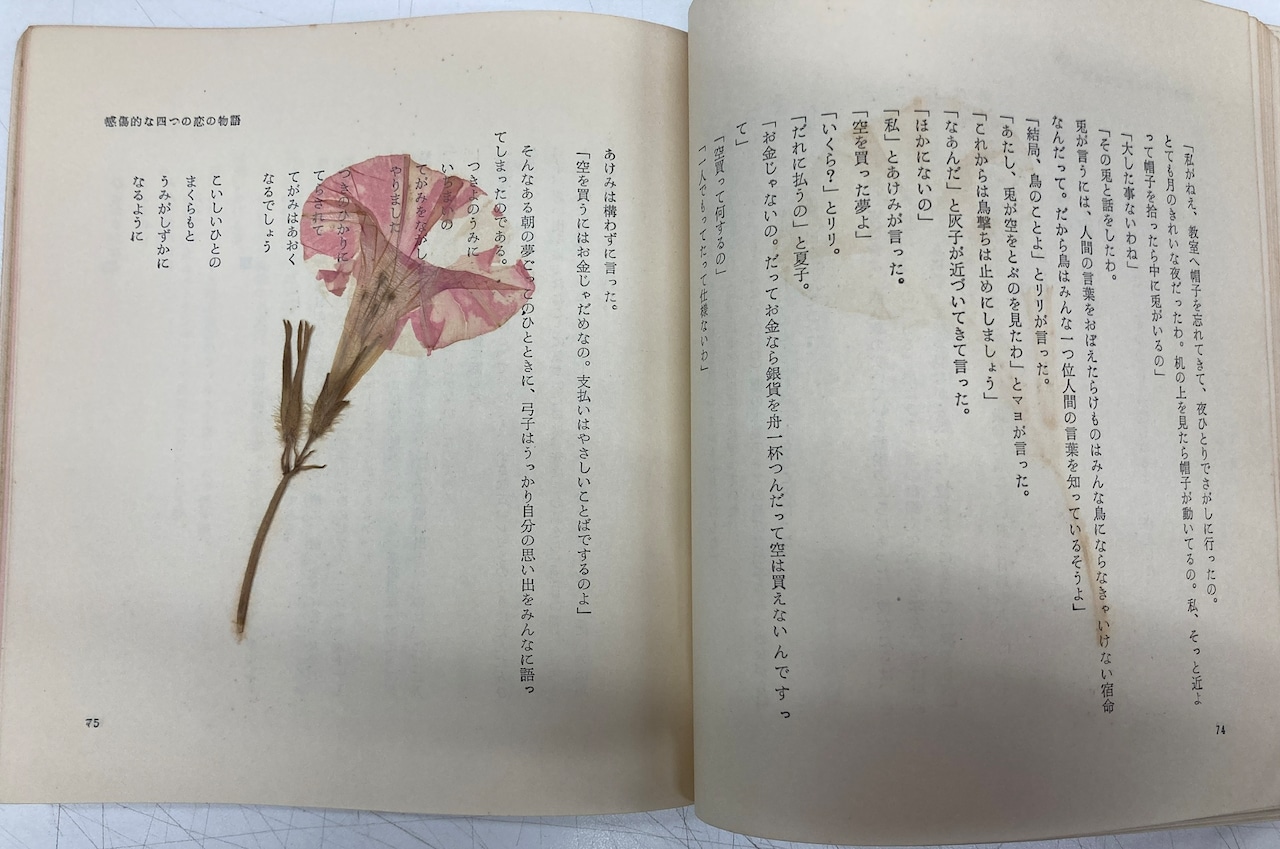 「私がねえ、教室へ帽子を忘れてきて、夜ひとりでさがしに行ったの。
とても月のきれいな夜だったわ。机の上を見たら帽子が動いてるの。私、そっと近よ
って帽子を拾ったら中に兎がいるの」
「大した事ないわね」
「その兎と話をしたわ。
兎が言うには、人間の言葉をおぼえたらけものはみんな鳥にならなきゃいけない宿命
なんだって。だから鳥はみんな一つ位人間の言葉を知っているそうよ」
「結局、鳥のことよ」とリリが言った。
「あたし、兎が空をとぶのを見たわ」とマヨが言った。
「これからは鳥撃ちは止めにしましょう」
「なあんだ」と灰子が近づいてきて言った。
「ほかにないの」
「私」とあけみが言った。
「空を買った夢よ」
「いくら?」とリリ。
「だれに払うの」と夏子。
「お金じゃないの。だってお金なら銀貨を舟一杯つんだって空は買えないんですっ
て」
「空買って何するの」
「一人でもってたって仕様ないわ」
74
あけみは構わずに言った。
「空を買うにはお金じゃだめなの。支払いはやさしいことばでするのよ」
そんなある朝の夢ごっこのひとときに、弓子はうっかり自分の思い出をみんなに語っ
てしまったのである。
つきよのうみに
いちまいの
てがみをながし
やりました
つきのひかりに
てらされて
てがみはあおく
なるでしょう
こいしいひとの
まくらもと
うみがしずかに
なるように
感傷的な四つの恋の物語
75